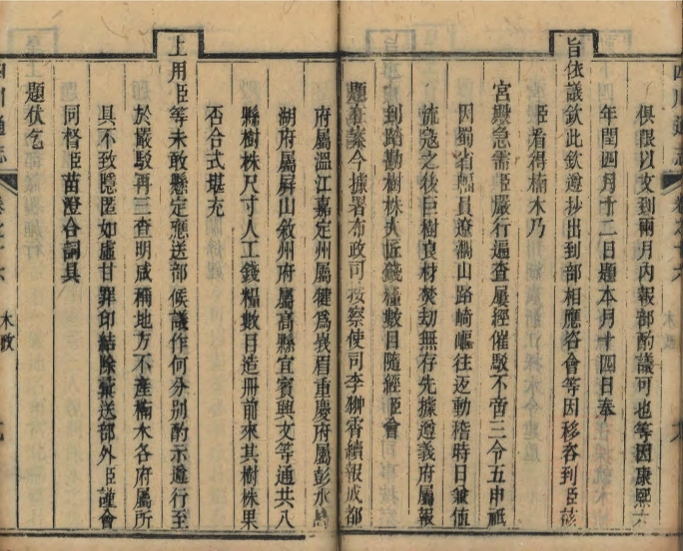 四川通志
卷之十六
木政
俱限以文到兩月內報部酌議可也等因康熙六
年閏四月十二日題本月十四日奉
旨依議欽此欽遵抄出到部相應咨會等因移咨到臣該
臣看得楠木乃
宮殿急需臣嚴行遍查屢經催駁不啻三令五申祗
因蜀省幅員遼濶山路崎嶇往返動稽時日兼值
流寇之後巨樹良材焚劫無存先據遵義府屬報
到踏勘樹株人匠錢糧數目隨經臣會
題在案今據署布政司按察使司李翀霄續報成都
府屬溫江嘉定州屬犍爲峩眉重慶府屬彭水馬
湖府屬屏山敘州府屬高縣宜賓興文等通共八
縣樹株尺寸人工錢糧數目造册前來其樹株果
否合式堪充
上用臣等未敢懸定應送部候議作何分别酌示遵行至
於嚴駁再三查明咸稱地方不產楠木各府屬所
具不致隱匿如虛甘罪印結除彙送部外臣謹會
同督臣苗澄合詞具
題伏乞
四川通志
卷之十六
木政
九